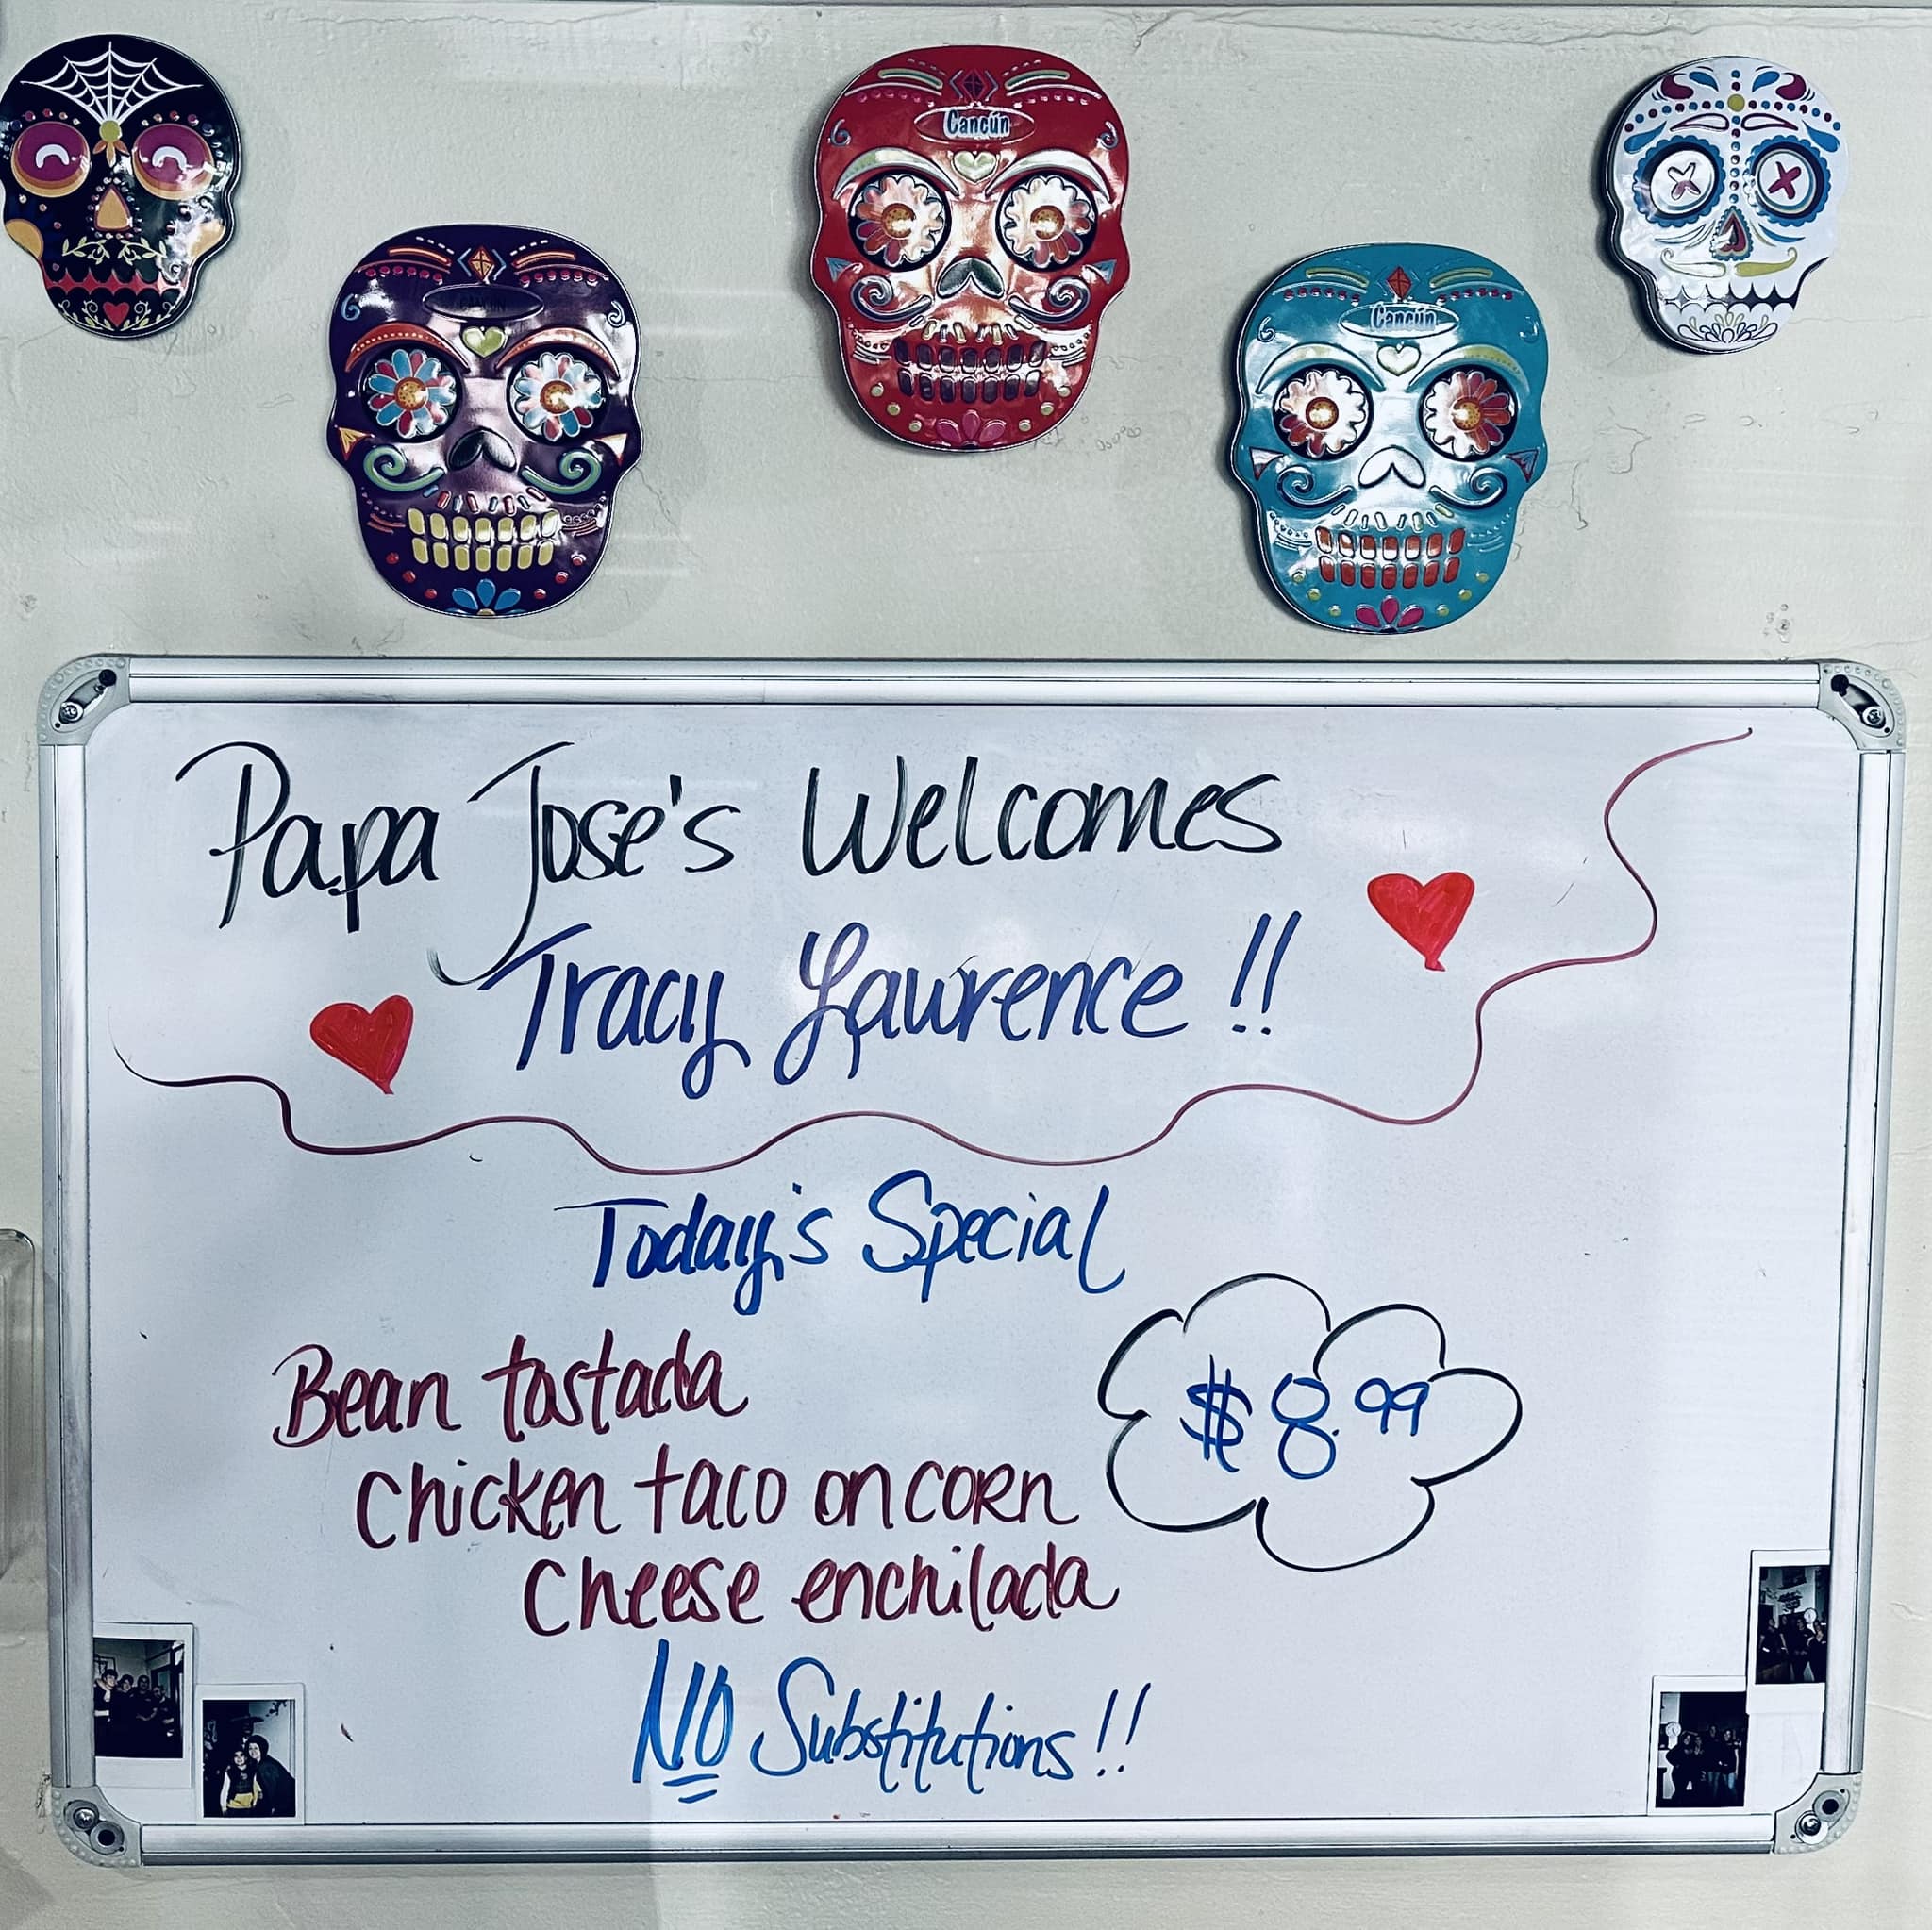 Cancún
CANCUN
Cancún
Papa Jose's Welcomes
Tracy Lawrence!!
Today's Special
Bean tostada
$8.99
chicken taco on corn
cheese enchilada
NO Substitutions!!